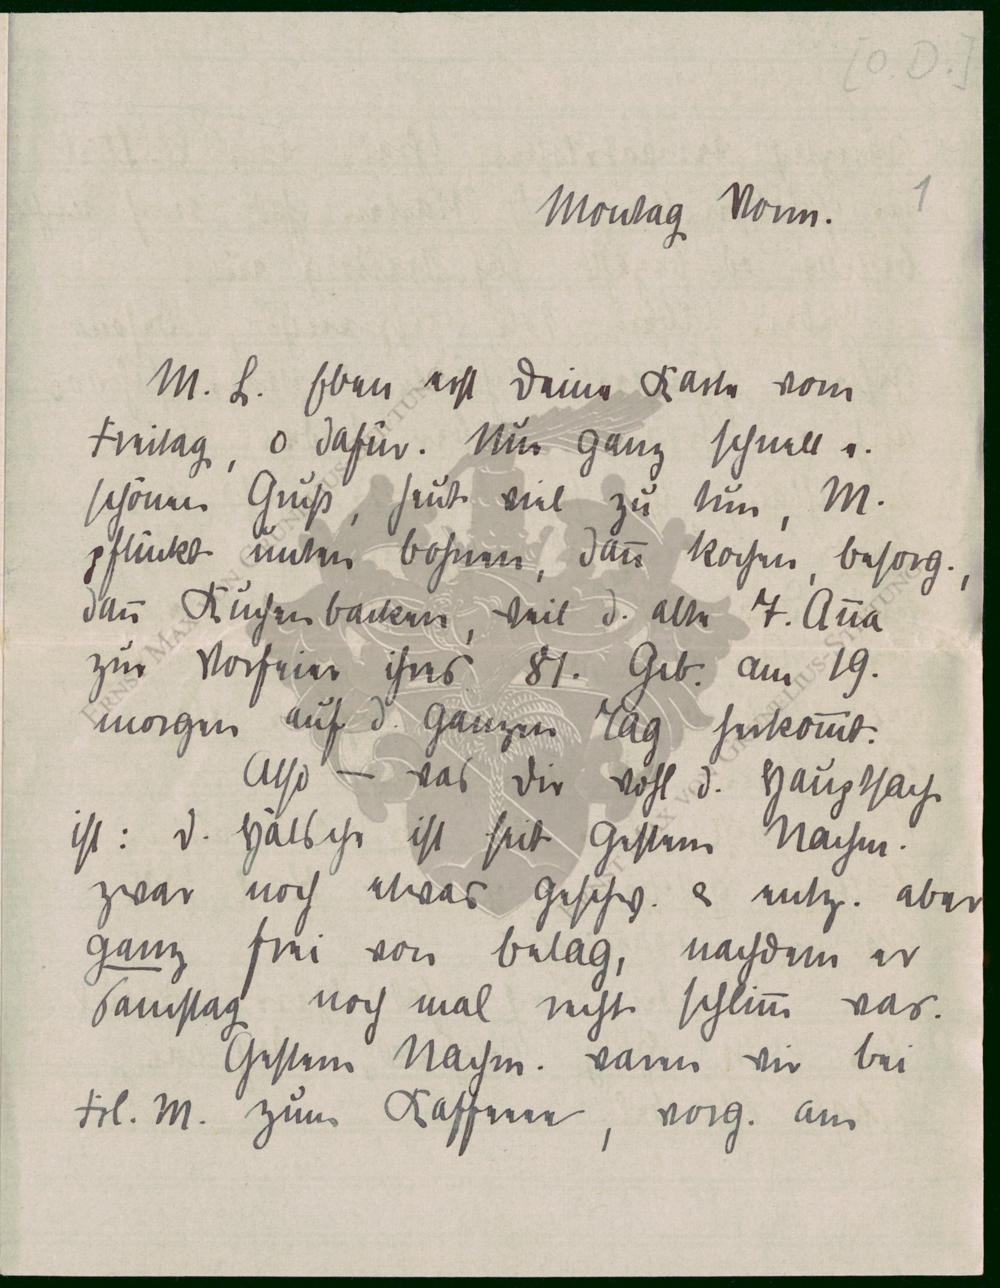 [O. D.]
1
Montag Vorm.
M. L. Eben erst Deine Karte vom
Freitag, o dafür. Nur ganz schnell e.
schönen Gruß, heut viel zu tun, M.
pflückt unten bohnen, dañ kochen, besorg.,
dañ Kuchenbacken, weil d. alte F. Aña
zur Vorfeier ihres 81. Geb. am 19.
morgen auf d. ganzen Tag herkom̃t.
Also — was Dir wohl d. Hauptsach
ist: d. Hälsche ist seit gestern Nachm.
zwar noch etwas geschw. & entz. aber
ganz frei von belag, nachdem er
Samstag noch mal recht schlim̃ war.
Gestern Nachm. waren wir bei
Frl. M. zum Kaffeeee, vorg. am
ERNST MAX VON GRUNELIUS-STIFTUNG
ERNST MAX VON GRUNELIUS-STIFTUNG